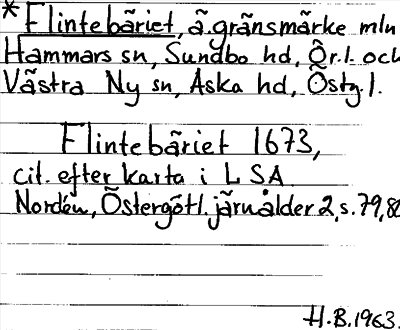 *Flintebäriet, ä.gränsmärke mln
Hammars sn, Sundbo hd, Ör.l. och
Västra Ny sn, Aska hd, Östg.l.
Flintebäriet 1673,
cit. efter karta i LSA.
Nordén, Östergötl. järnålder 2, s. 79, 80
H.B. 1963.